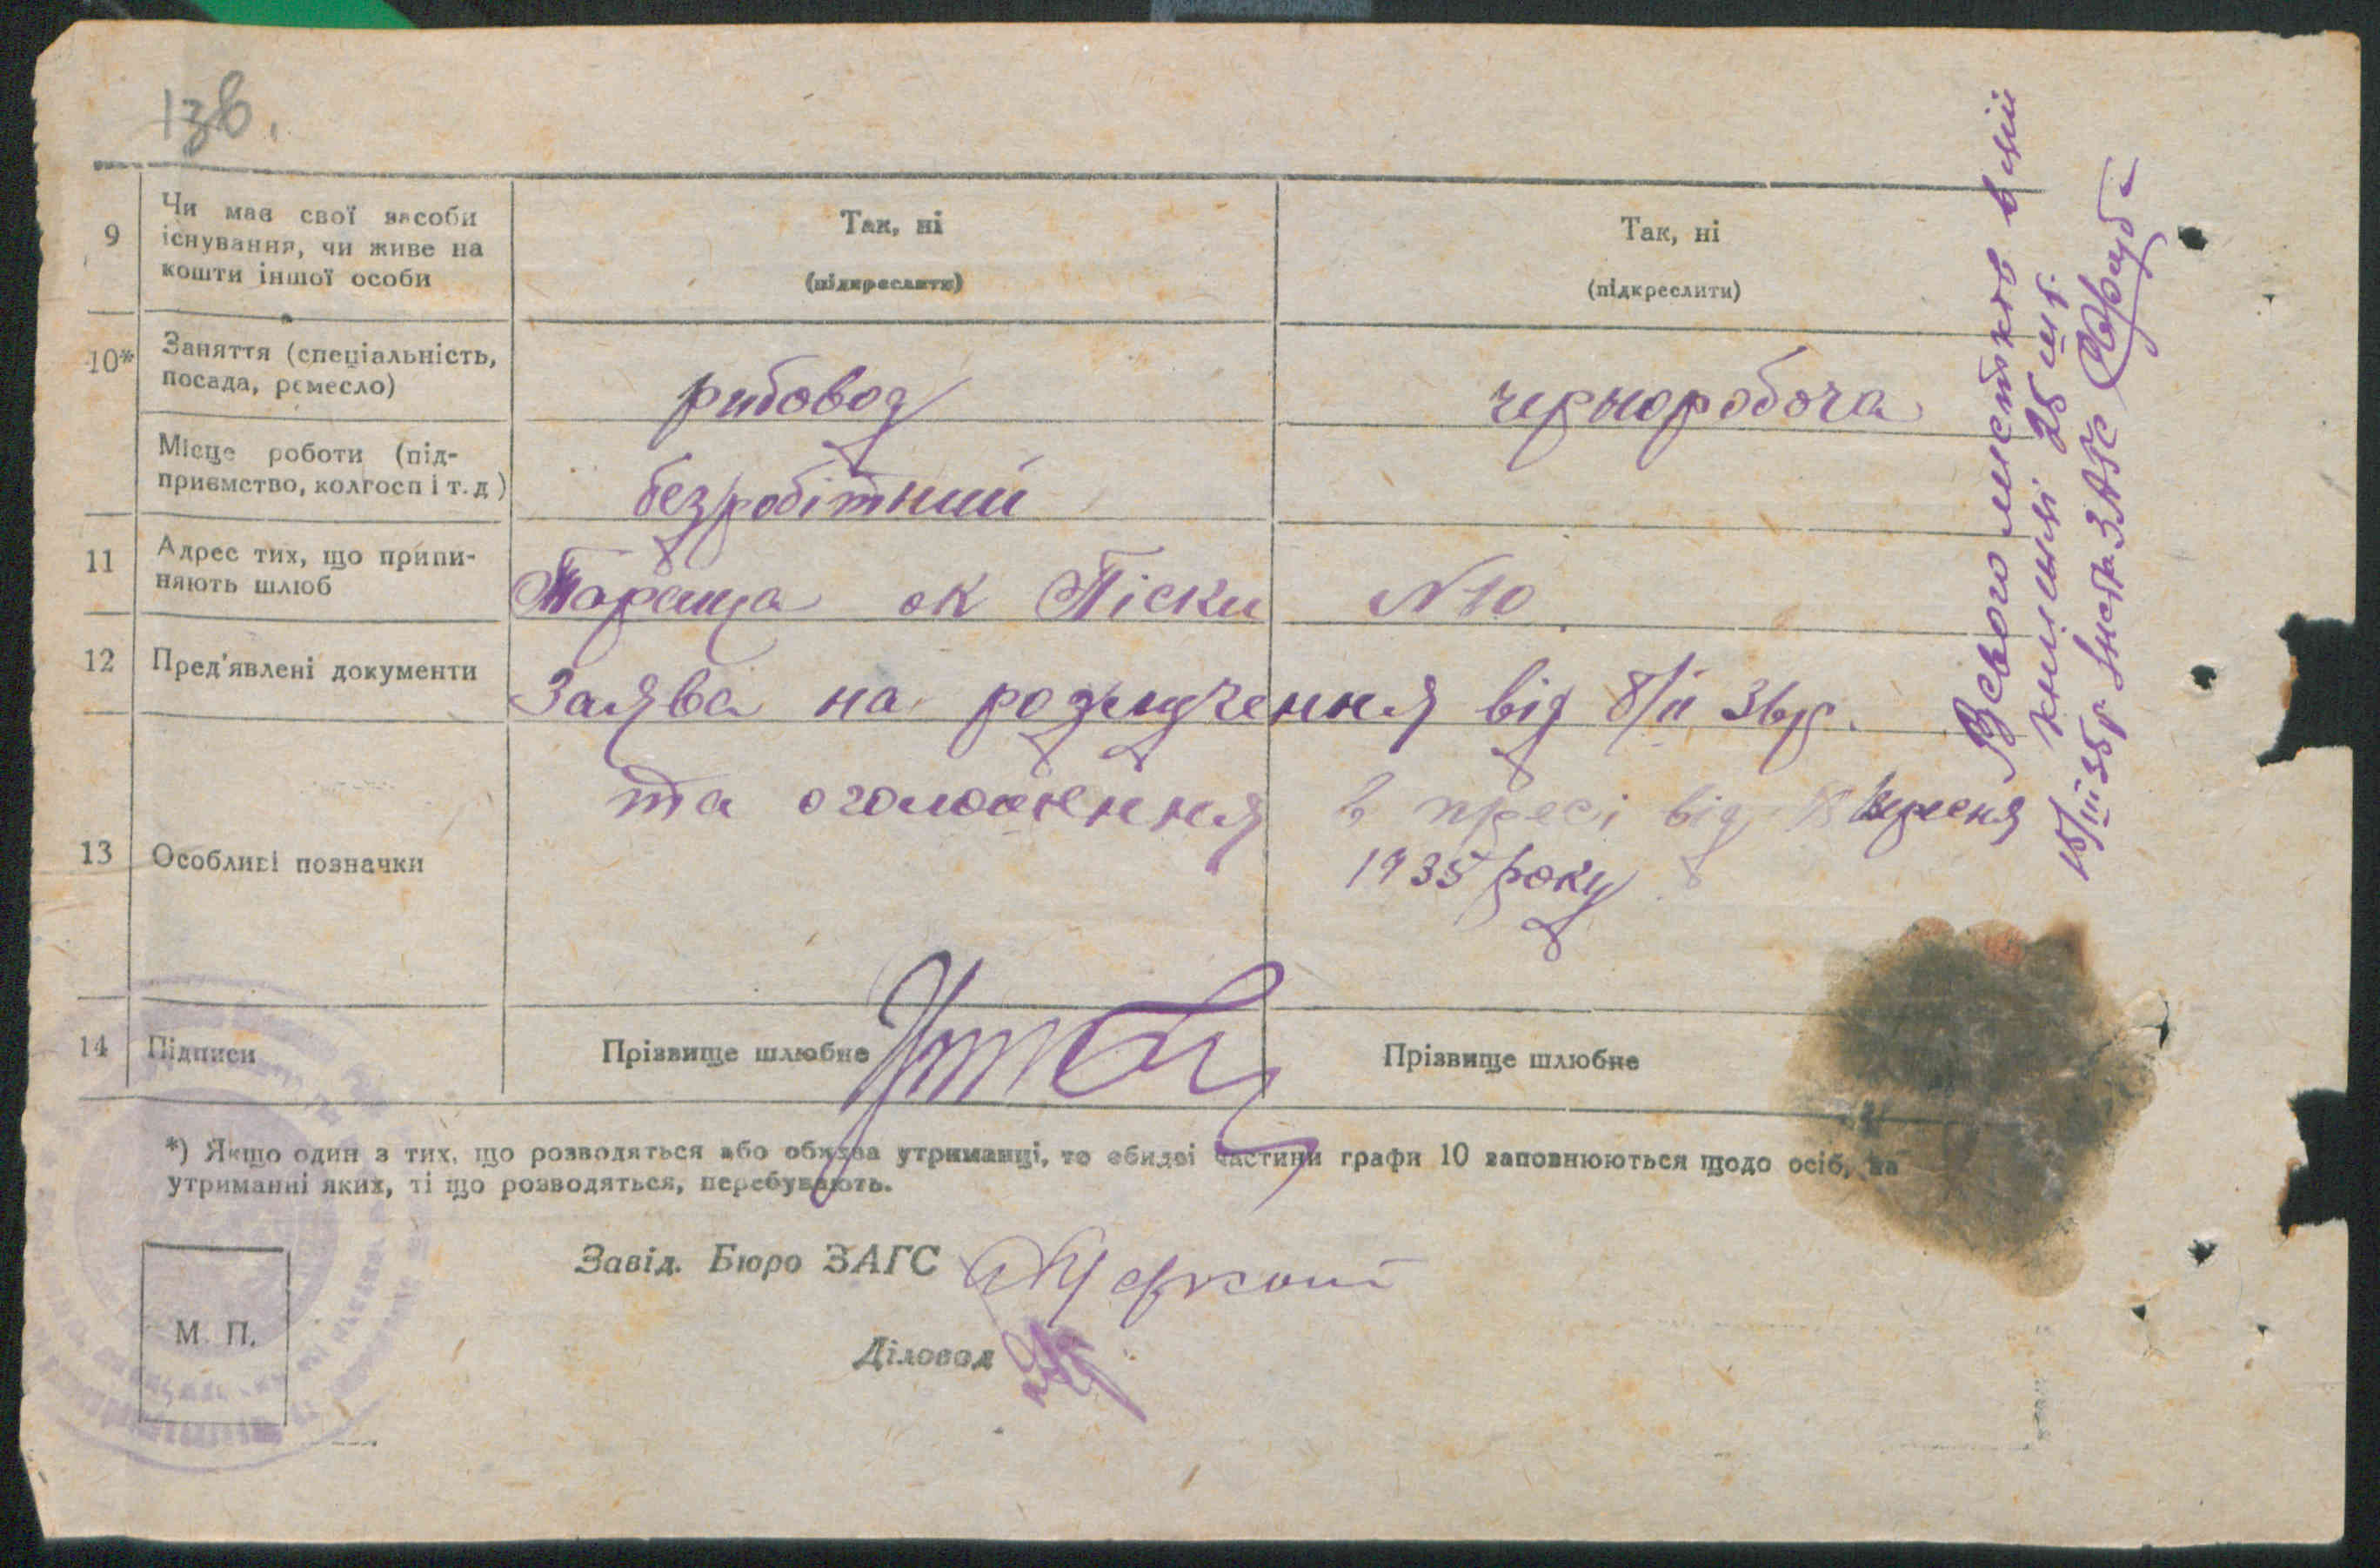 138.
9
Чи має свої засоби
існування, чи живе на
кошти іншої особи
Так, ні
(підкреслити)
Так, ні
(підкреслити)
10*
Заняття (спеціальність,
посада, ремесло)
рибовод
чорноробоча
Місце роботи (під-
приємство, колгосп і т. д)
безробітний
11
Адрес тих, що припи-
няють шлюб
Тараща ок Піски N10
12
Пред'явлені документи
Заява на розлучення від 8/II 36 р.
та оголошення в пресі від вересня
1935 року
13
Особливі позначки
14
Підписи
Прізвище шлюбне
Прізвище шлюбне
*) Якщо один з тих, що розводяться або обидва утриманці, то обидві частини графи 10 заповнюються щодо осіб, на
утриманні яких, ті що розводяться, перебувають.
Завід. Бюро ЗАГС
Діловод
М. П.
Всього листків в цій
книжці 25 шт.
ЗАГС